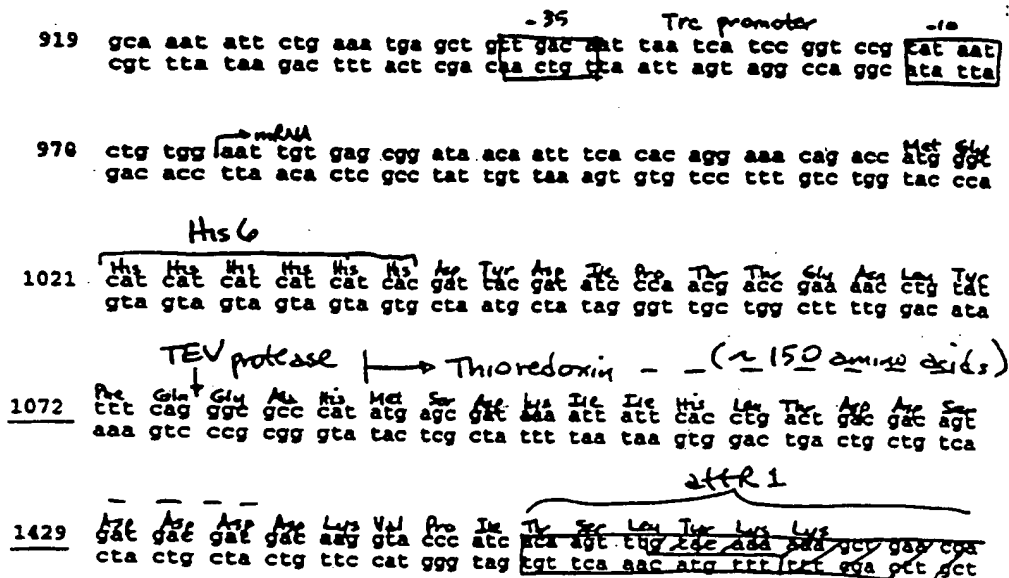 -35 Trc promoter -10
919 gca aat att ctg aaa tga gct gtt gac aat taa tca tcc ggt ccg tat aat
cgt tta taa gac ttt act cga caa ctg tta att agt agg cca ggc ata tta
mRNA Met Gly
970 ctg tgg aat tgt gag cgg ata aca att tca cac agg aaa cag acc atg ggt
gac acc tta aca ctc gcc tat tgt taa agt gtg tcc ttt gtc tgg tac cca
His 6
His His His His His His Asp Tyr Asp Ile Pro Thr Thr Gly Asn Leu Tyr
1021 cat cat cat cat cat cac gat tac gat atc cca acg acc gaa aac ctg tat
gta gta gta gta gta gtg cta atg cta tag ggt tgc tgg ctt ttg gac ata
TEV protease Thioredoxin - - (~ 150 amino acids)
Phe Gln Gly Ala His Met Ser Asp Lys Ile Ile His Leu Thr Asp Asp Ser
1072 ttt cag ggc gcc cat atg agc gat aaa att att cac ctg act gac gac agt
aaa gtc ccg cgg gta tac tcg cta ttt taa taa gtg gac tga ctg ctg tca
attR 1
Asp Asp Asp Asp Lys Val Pro Ile Thr Ser Leu Tyr Lys Lys
1429 gat gac gat gac aag gta ccc atc aca agt ttg tac aaa aaa gct gaa cga
cta ctg cta ctg ttc cat ggg tag tgt tca aac atg ttt ttt cga ctt gct